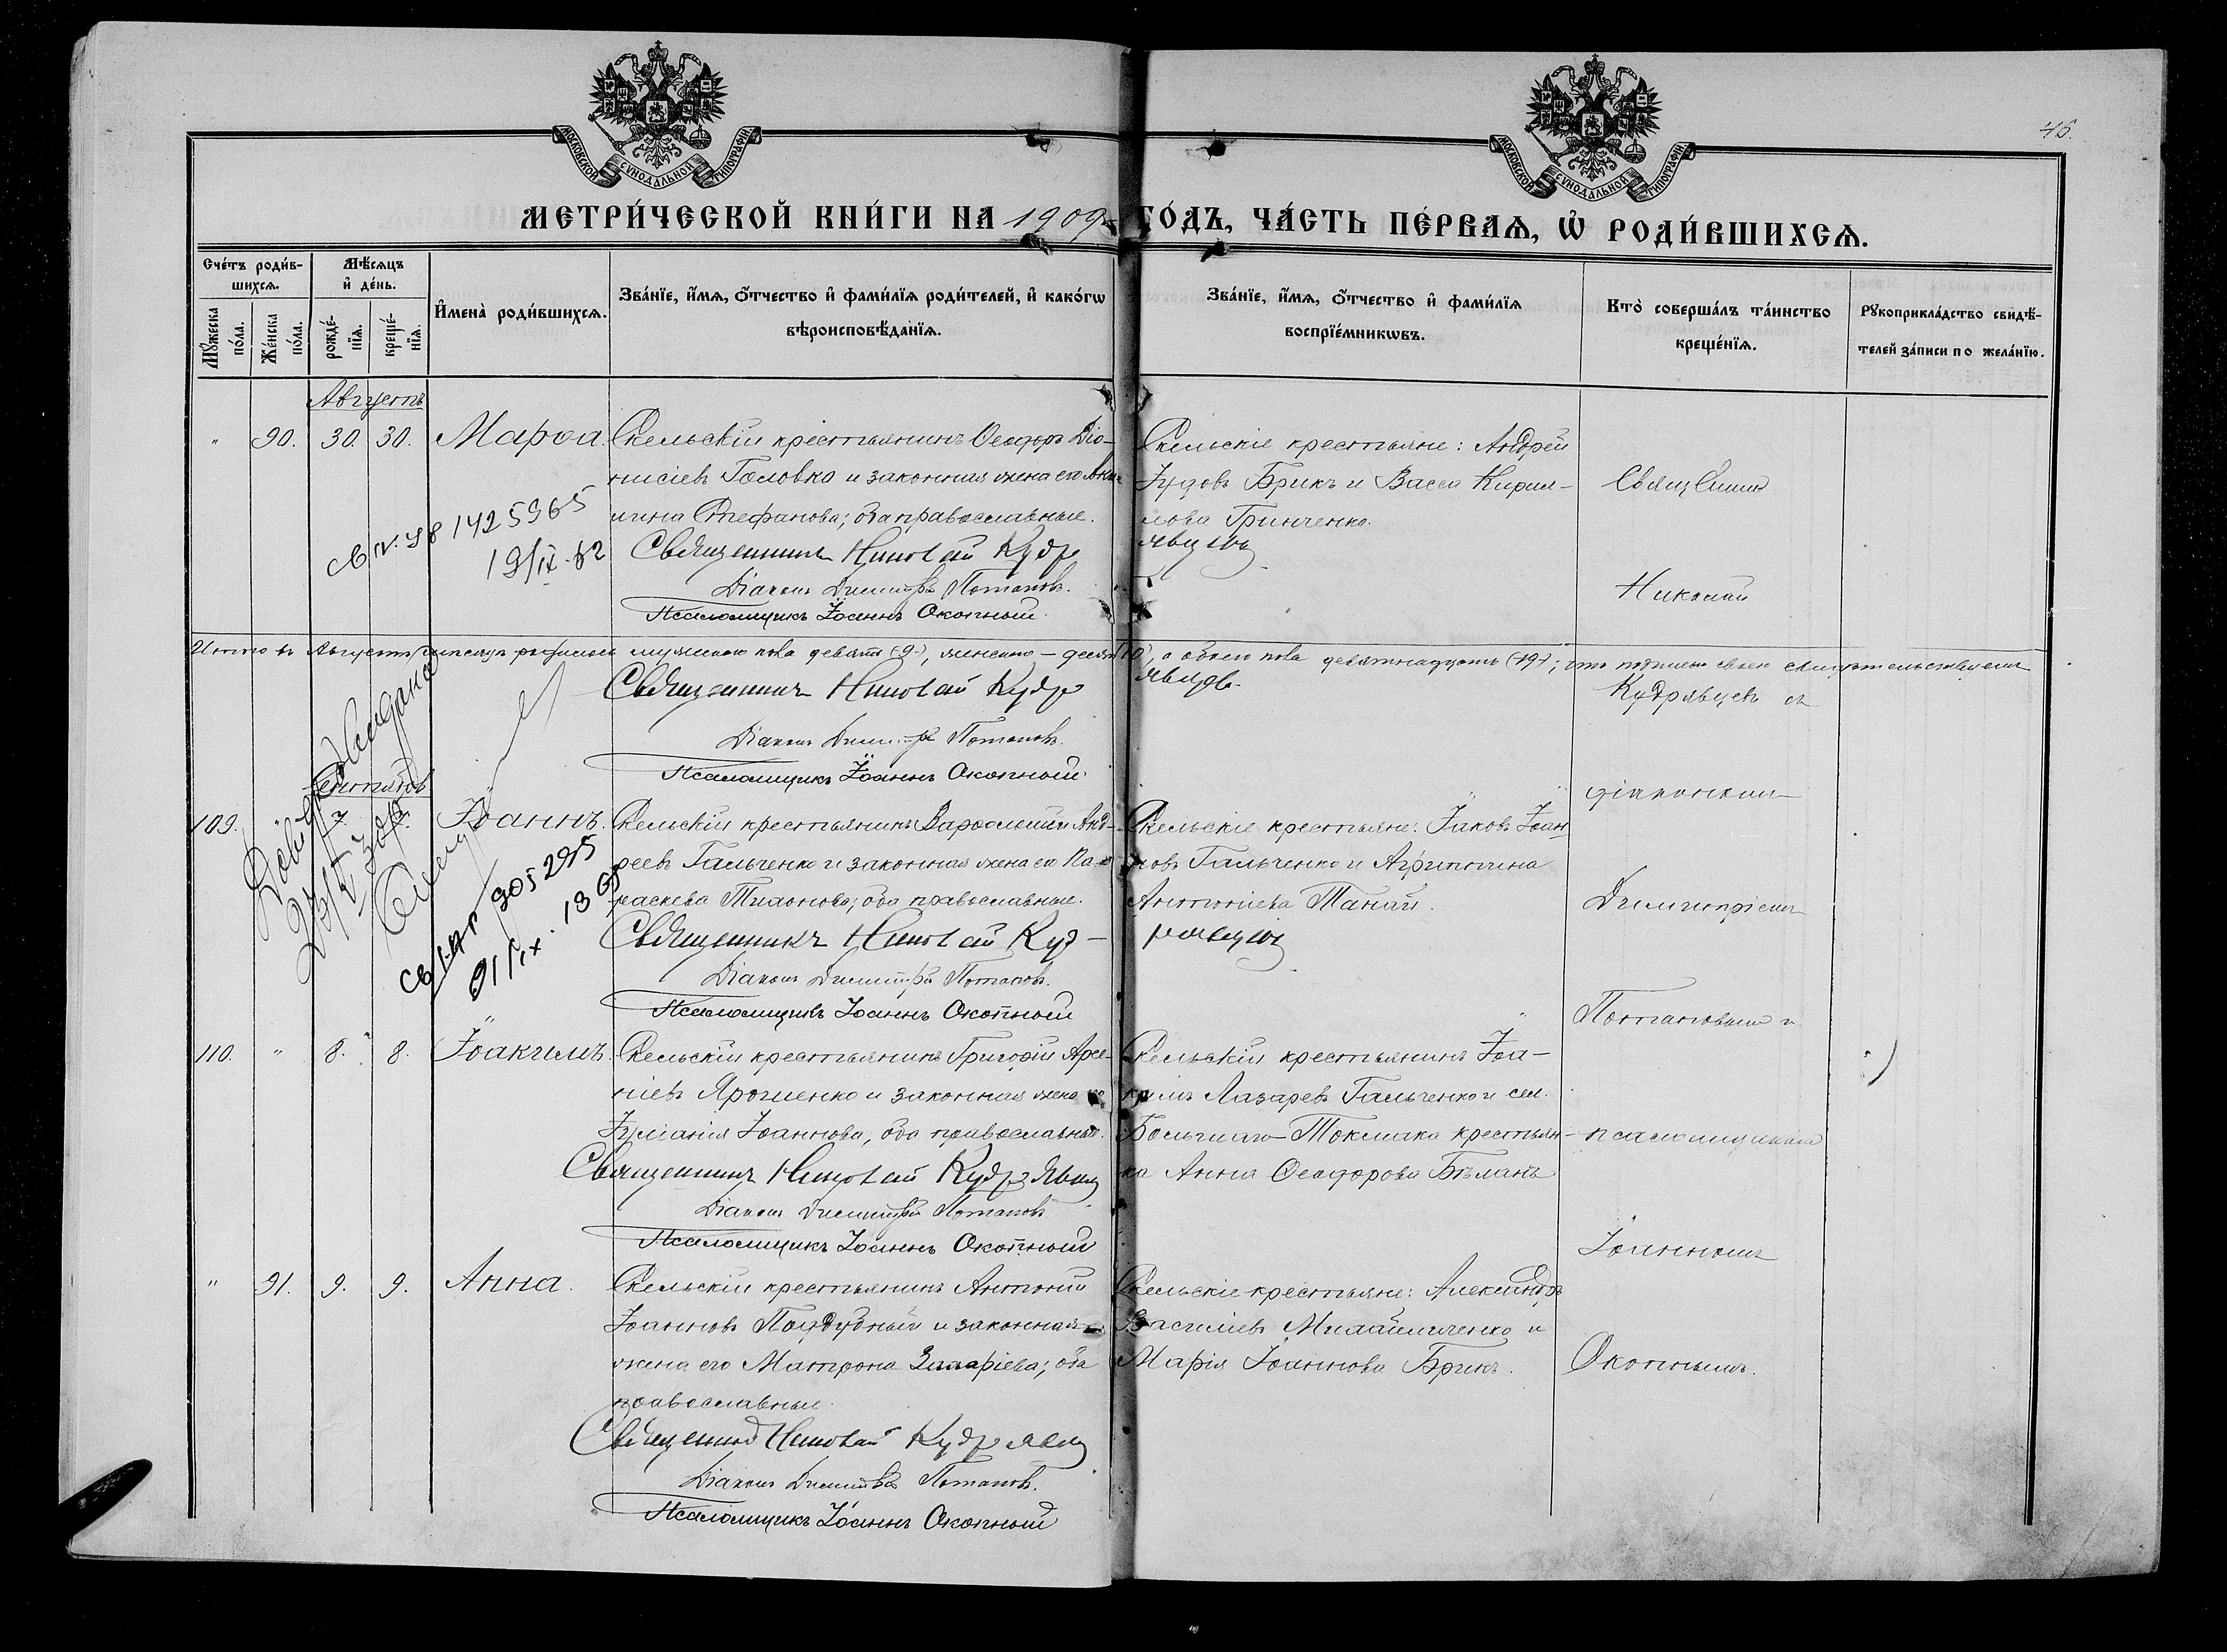 МОСКОВСКОЙ СѴНОДАЛЬНОЙ ТИПОГРАФІИ
МОСКОВСКОЙ СѴНОДАЛЬНОЙ ТИПОГРАФІИ
46.
МЕТРИ́ЧЕСКОЙ КНИ́ГИ НА 1909 ГО́ДЪ, ЧА́СТЬ ПЕ́РВАѦ, Ѡ҆ РОДИ́ВШИХСѦ.
Сче́тъ роди́в-
шихсѧ.
Мѣ́сяцъ
и҆ де́нь.
Мꙋ́жеска по́ла.
Же́нска по́ла.
рожде́-нїѧ.
креще́-нїѧ.
И҆мена̀ роди́вшихсѧ.
Зва́нїе, и҆́мѧ, ѻ҆́тчество и҆ фами́лїѧ роди́телей, и҆ како́гѡ
вѣроисповѣ́данїѧ.
Зва́нїе, и҆́мѧ, ѻ҆́тчество и҆ фами́лїѧ
воспрїе́мникѡвъ.
Кто̀ соверша́лъ та́инство
креще́нїѧ.
Рꙋкоприкла́дство свидѣ́-
телей за́писи по жела́нїю.
Августъ
" 90. 30. 30. Марѳа. Скельскій крестьянинъ Ѳеодоръ Діо-
нисіевъ Головко и законная жена его
Стефанова; оба православные.
Священникъ Николай Кудрявцевъ
Діаконъ Димитрій Потаповъ.
Псаломщикъ Іоаннъ Окопный.
Скельскіе крестьяне: Андрей
Іудовъ Брикъ и Васса Кирил-
лова Гринченко.
1425965
19/IX-82
Итого въ Августѣ мѣсяцѣ родилось мужескаго пола девять (9), женскаго - десять (10), а обоего пола девятнадцать (19); что подписью своею свидѣтельствуемъ
Священникъ Николай Кудрявцевъ
Діаконъ Димитрій Потаповъ.
Псаломщикъ Іоаннъ Окопный.
Сентябрь
109. " 7. 7. Іоаннъ. Скельскій крестьянинъ Варѳоломей Анд-
реевъ Гальченко и законная жена его Па-
раскева Тихонова; оба православные.
Священникъ Николай Кудрявцевъ
Діаконъ Димитрій Потаповъ.
Псаломщикъ Іоаннъ Окопный
Скельскіе крестьяне: Іаковъ Іоан-
новъ Гальченко и Агриппина
Антоніева Танай.
905295
110. " 8. 8. Іоакимъ. Скельскій крестьянинъ Григорій Арсе-
ніевъ Ярошенко и законная жена его
Іуліанія Іоаннова, оба православные.
Священникъ Николай Кудрявцевъ
Діаконъ Димитрій Потаповъ
Псаломщикъ Іоаннъ Окопный
Скельскій крестьянинъ Іоа-
кимъ Лазаревъ Гальченко и сел.
Большого Токмака крестьян-
ка Анна Ѳеодорова Бѣланъ
" 91. 9. 9. Анна. Скельскій крестьянинъ Антоній
Іоанновъ Поддубный и законная
жена его Матрона Захаріева; оба
православные.
Священникъ Николай Кудрявцевъ
Діаконъ Димитрій Потаповъ.
Псаломщикъ Іоаннъ Окопный
Скельскіе крестьяне: Александръ
Василіевъ Михайличенко и
Марія Іоаннова Брикъ.
Священник
Николай
Кудрявцевъ съ
діакономъ
Димитріемъ
Потаповымъ и
псаломщикомъ
Іоанномъ
Окопнымъ.